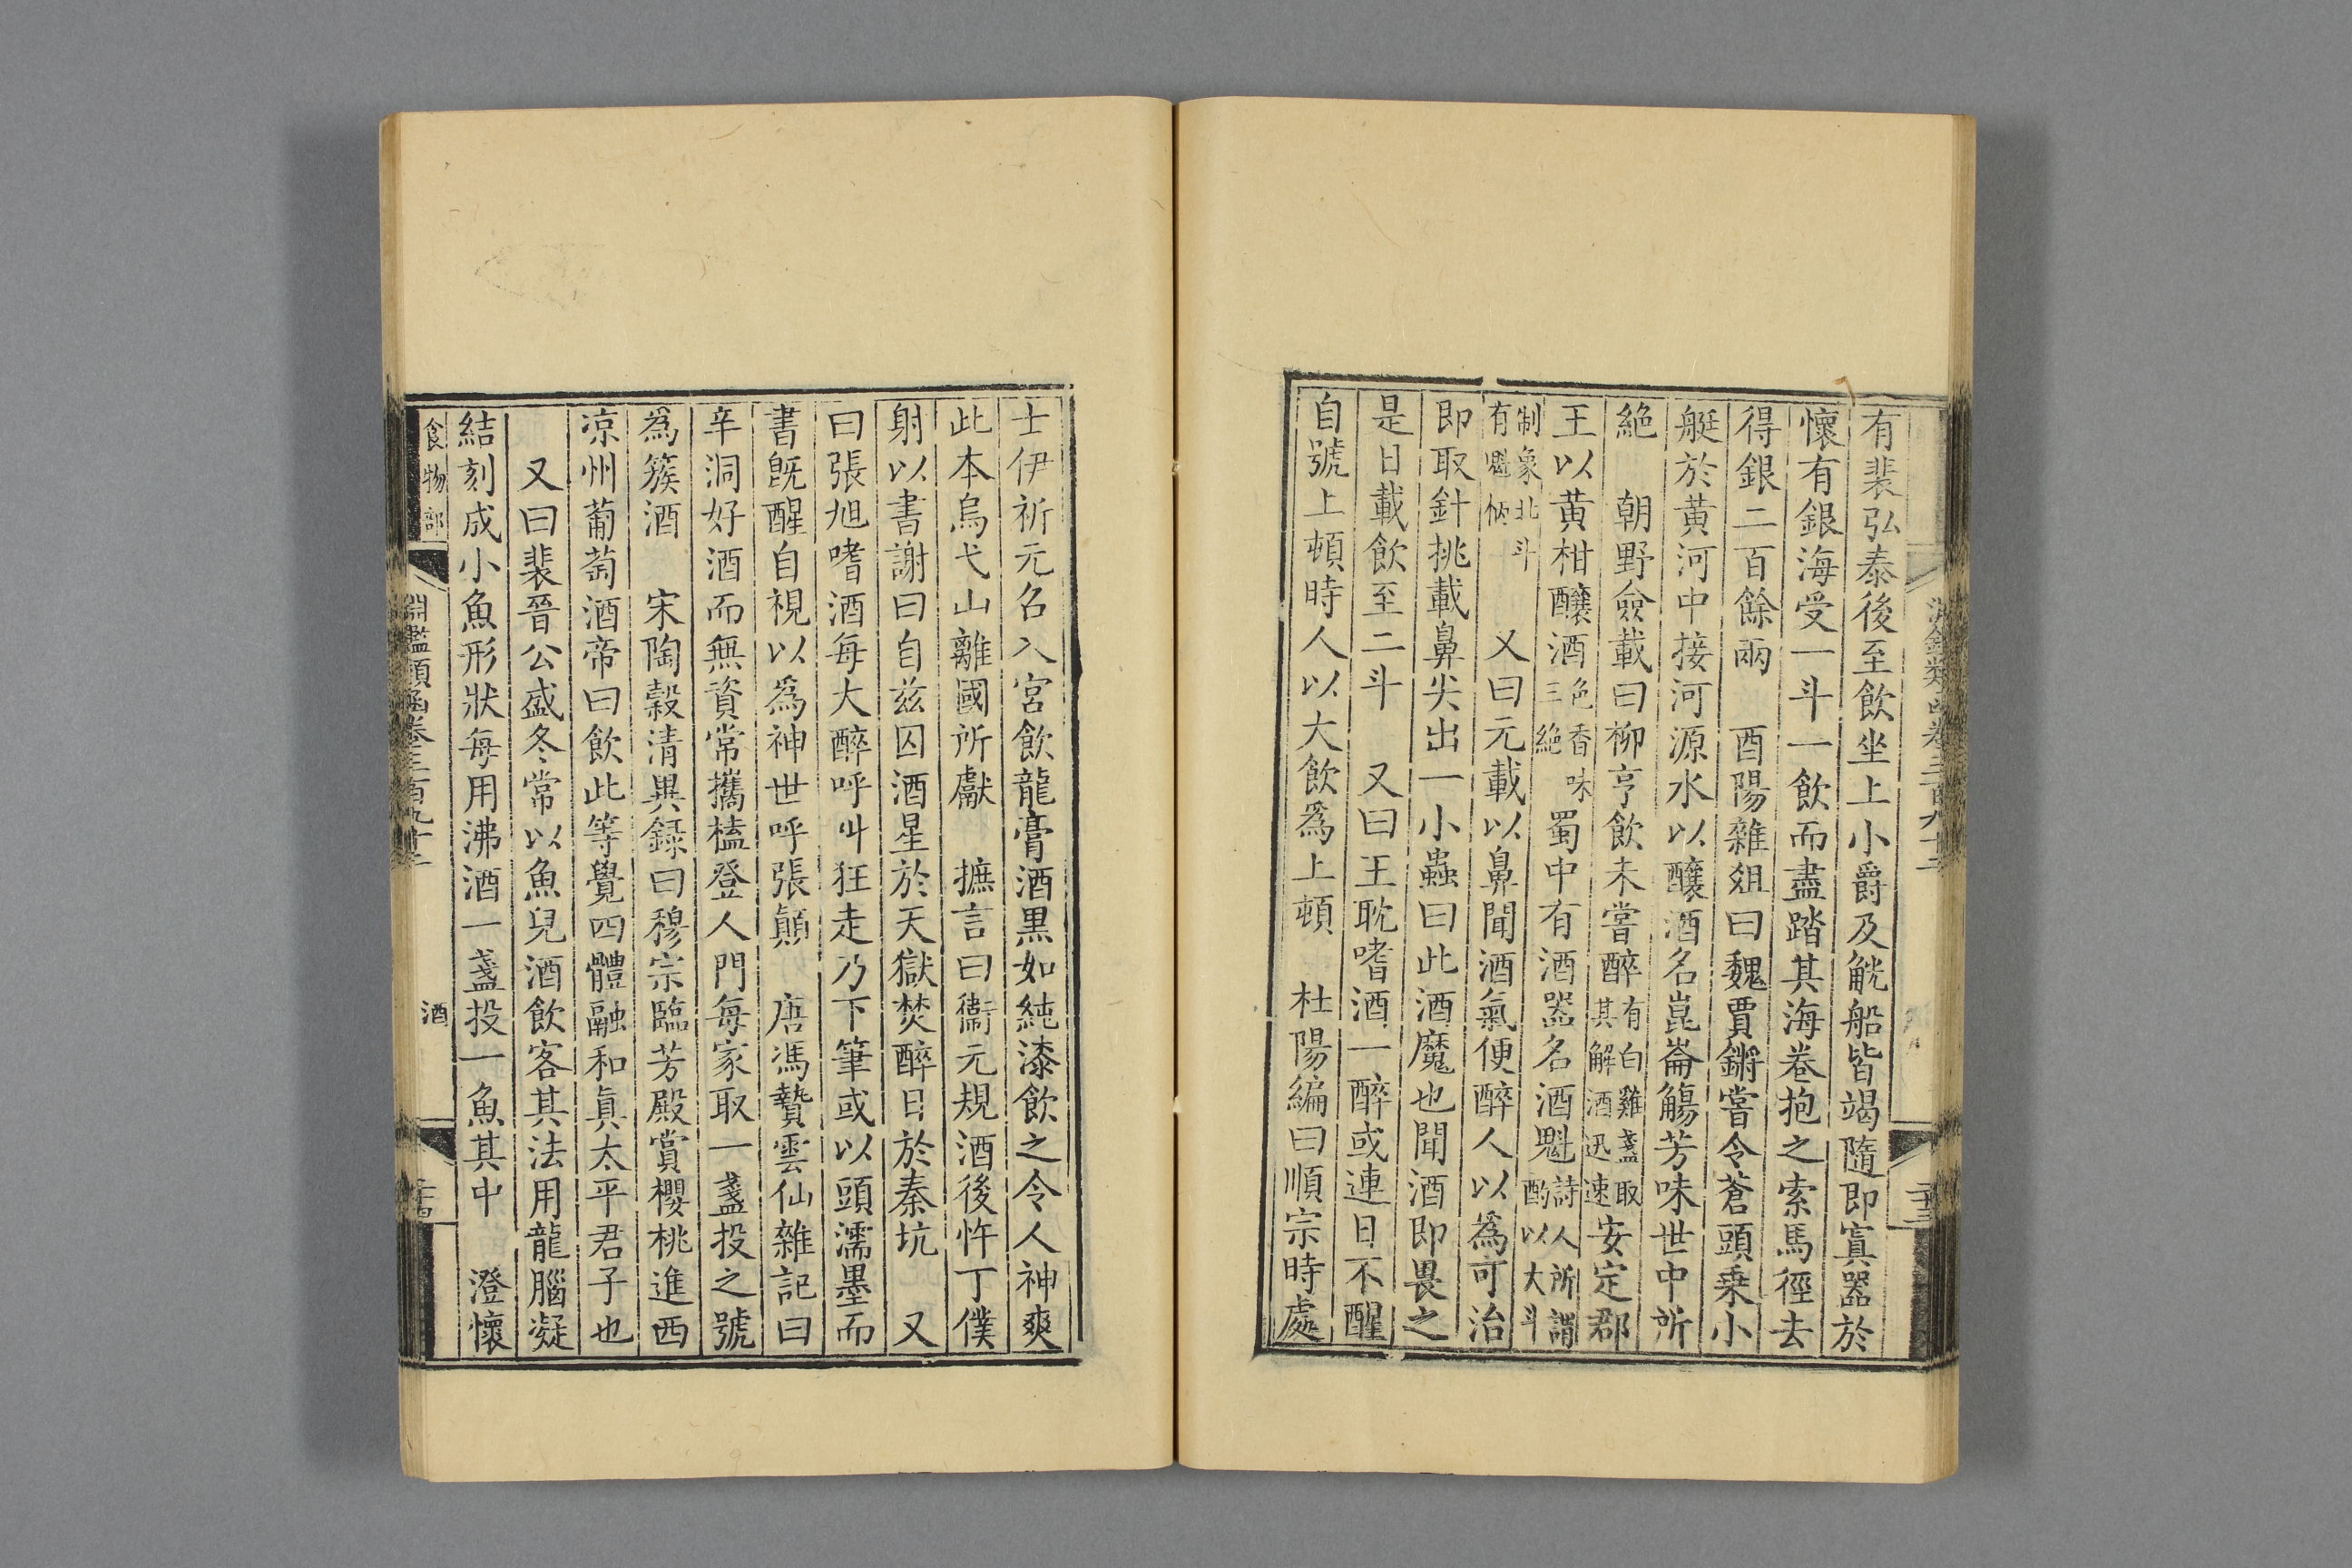 有裴弘泰後至飲坐上小爵及觥船皆竭隨即寘器於
懷有銀海受一斗一飲而盡踏其海卷抱之索馬徑去
得銀二百餘兩　酉陽雜俎曰魏賈鏘嘗令蒼頭乗小
艇於黃河中接河源水以釀酒名崑崙觴芳味世中所
絶　朝野僉載曰柳亨飲未嘗醉有白雞盞取其解酒迅速安定郡
王以黄柑釀酒色香味三絶蜀中有酒器名酒魁詩人所謂酌以大斗
制象北斗有魁柄　又曰元載以鼻聞酒氣便醉人以為可治
即取針挑載鼻尖出一小蟲曰此酒魔也聞酒即畏之
是日載飲至二斗　又曰王耽嗜酒一醉或連日不醒
自號上頓時人以大飲爲上頓　杜陽編曰順宗時處
士伊祈元召入宮飲龍膏酒黒如純漆飲之令人神爽
此本烏弋山離國所獻　摭言曰衞元規酒後忤丁僕
射以書謝曰自兹囚酒星於天獄焚醉日於秦坑　又
曰張旭嗜酒每大醉呼叫狂走乃下筆或以頭濡墨而
書旣醒自視以爲神世呼張顛　唐馮贄雲仙雜記曰
辛洞好酒而無資常攜榼登人門每家取一盞投之號
爲簇酒　宋陶穀清異録曰穆宗臨芳殿賞櫻桃進西
凉州葡萄酒帝曰飲此等覺四體融和真太平君子也
又曰裴晉公盛冬常以魚兒酒飲客其法用龍腦凝
結刻成小魚形狀每用沸酒一盞投一魚其中　澄懷
食物部
淵鑑類函卷三百九十二
酒